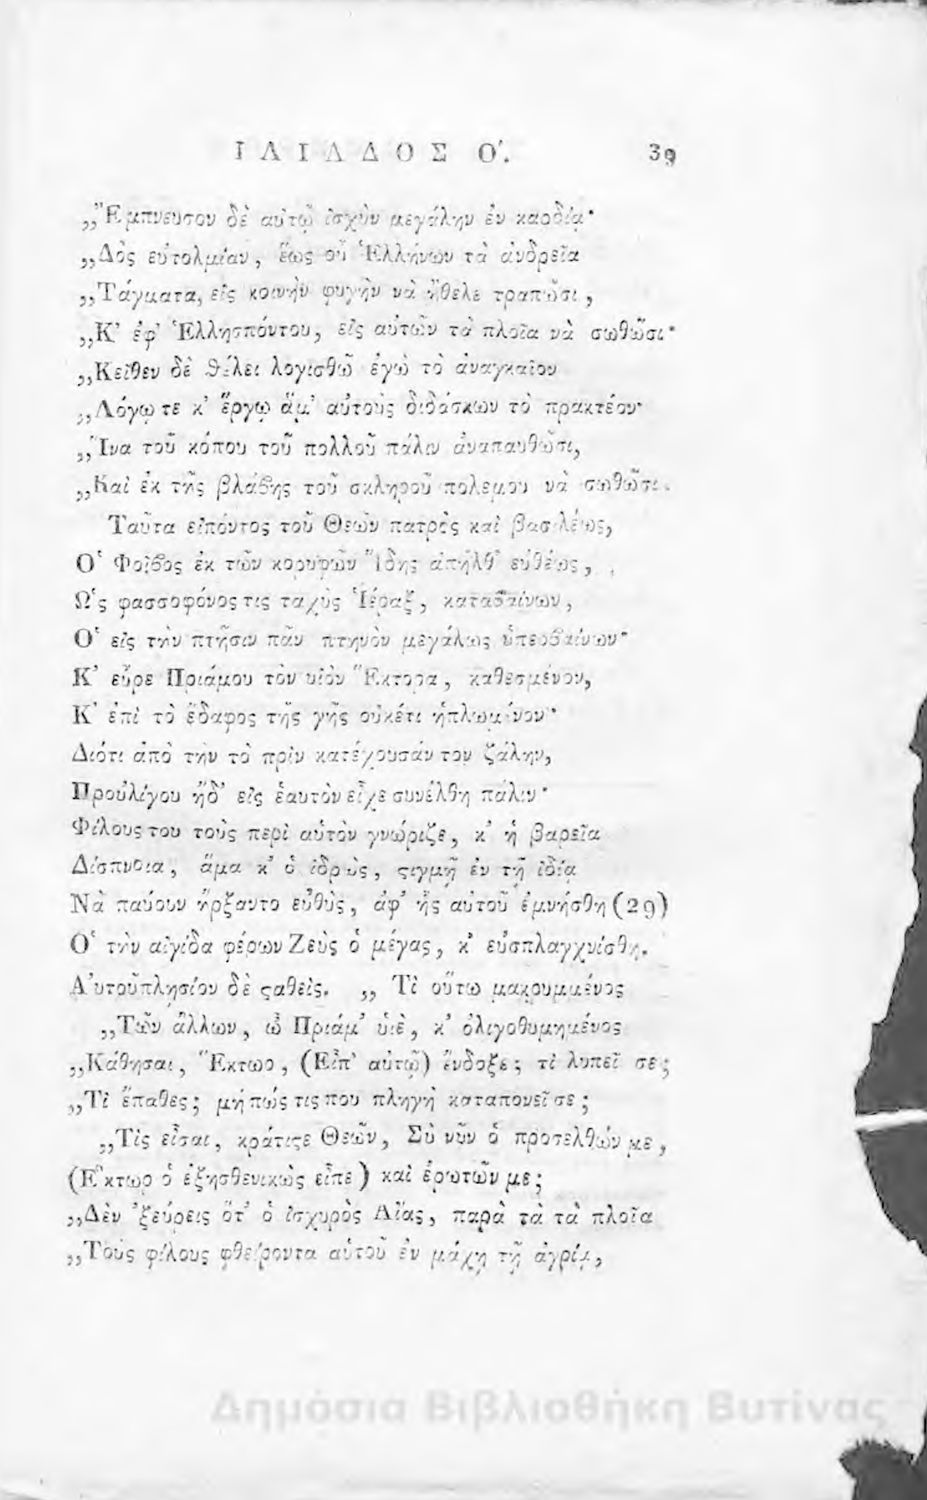 ΙΛΙΑΔΟΣ Ο'. 39
„Ἔμπνευσον δὲ αὐτῷ ἰσχὺν μεγάλην ἐν καρδίᾳ·
„Δὸς εὐτολμίαν, ἕως οὗ Ἑλλήνων τὰ ἀνδρεῖα
„Τάγματα, εἰς κοινὴν φυγὴν νὰ ἤθελε τραπῶσι,
„Κ' ἐφ' Ἑλλησπόντου, εἰς αὐτῶν τὰ πλοῖα νὰ σωθῶσι·
„Κεῖθεν δὲ θέλει λογισθῶ ἐγὼ τὸ ἀναγκαῖον
„Λόγῳ τε κ' ἔργῳ ἅμ' αὐτοὺς διδάσκων τὸ πρακτέον·
„Ἵνα τοῦ κόπου τοῦ πολλοῦ πάλιν ἀναπαυθῶσι,
„Καὶ ἐκ τῆς βλάβης τοῦ σκληροῦ πολέμου νὰ σωθῶσι.
Ταῦτα εἰπόντος τοῦ Θεῶν πατρὸς καὶ βασιλέως,
Ὁ Φοῖβος ἐκ τῶν κορυφῶν Ἴδης ἀπῆλθ' εὐθέως,
Ὡς φασσοφόνος τις ταχὺς Ἱέραξ, καταβαίνων,
Ὁ εἰς τὴν πτῆσιν πᾶν πτηνὸν μεγάλως ὑπερβαίνων·
Κ' εὗρε Πριάμου τὸν υἱὸν Ἕκτορα, καθεσμένον,
Κ' ἐπὶ τὸ ἔδαφος τῆς γῆς οὐκέτι ἡπλωμένον·
Διότι ἀπὸ τὴν τὸ πρὶν κατέχουσάν τον ζάλην,
Προὐλίγου ἤδ' εἰς ἑαυτὸν εἶχε συνέλθῃ πάλιν·
Φίλους του τοὺς περὶ αὐτὸν γνώριζε, κ' ἡ βαρεῖα
Δίσπνοια, ἅμα κ' ὁ ἱδρὼς, ϛιγμῇ ἐν τῇ ἰδίᾳ
Νὰ παύουν ἤρξαντο εὐθὺς, ἀφ' ἧς αὐτοῦ ἐμνήσθη (29)
Ὁ τὴν αἰγίδα φέρων Ζεὺς ὁ μέγας, κ' εὐσπλαγχνίσθη.
Αὐτοῦ πλησίον δὲ ϛαθεὶς. „ Τί οὕτω μακρυμμένος
„Τῶν ἄλλων, ὦ Πριάμ' υἱὲ, κ' ὀλιγοθυμημένος
„Κάθησαι, Ἕκτωρ, (Εἶπ' αὐτῷ) ἔνδοξε; τί λυπεῖ σε;
„Τί ἔπαθες; μήπως τις που πληγὴ καταπονεῖ σε;
„Τίς εἶσαι, κράτιϛε Θεῶν, Σὺ νῦν ὁ προσελθών με,
(Ἕκτωρ ὁ ἐξησθενικὼς εἶπε) καὶ ἐρωτῶν με;
„Δὲν 'ξεύρεις ὅτ' ὁ ἰσχυρὸς Αἴας, παρὰ τὰ τὰ πλοῖα
„Τοὺς φίλους φθείροντα αὐτοῦ ἐν μάχῃ τῇ ἀγρίᾳ,
Δημόσια Βιβλιοθήκη Βυτίνας